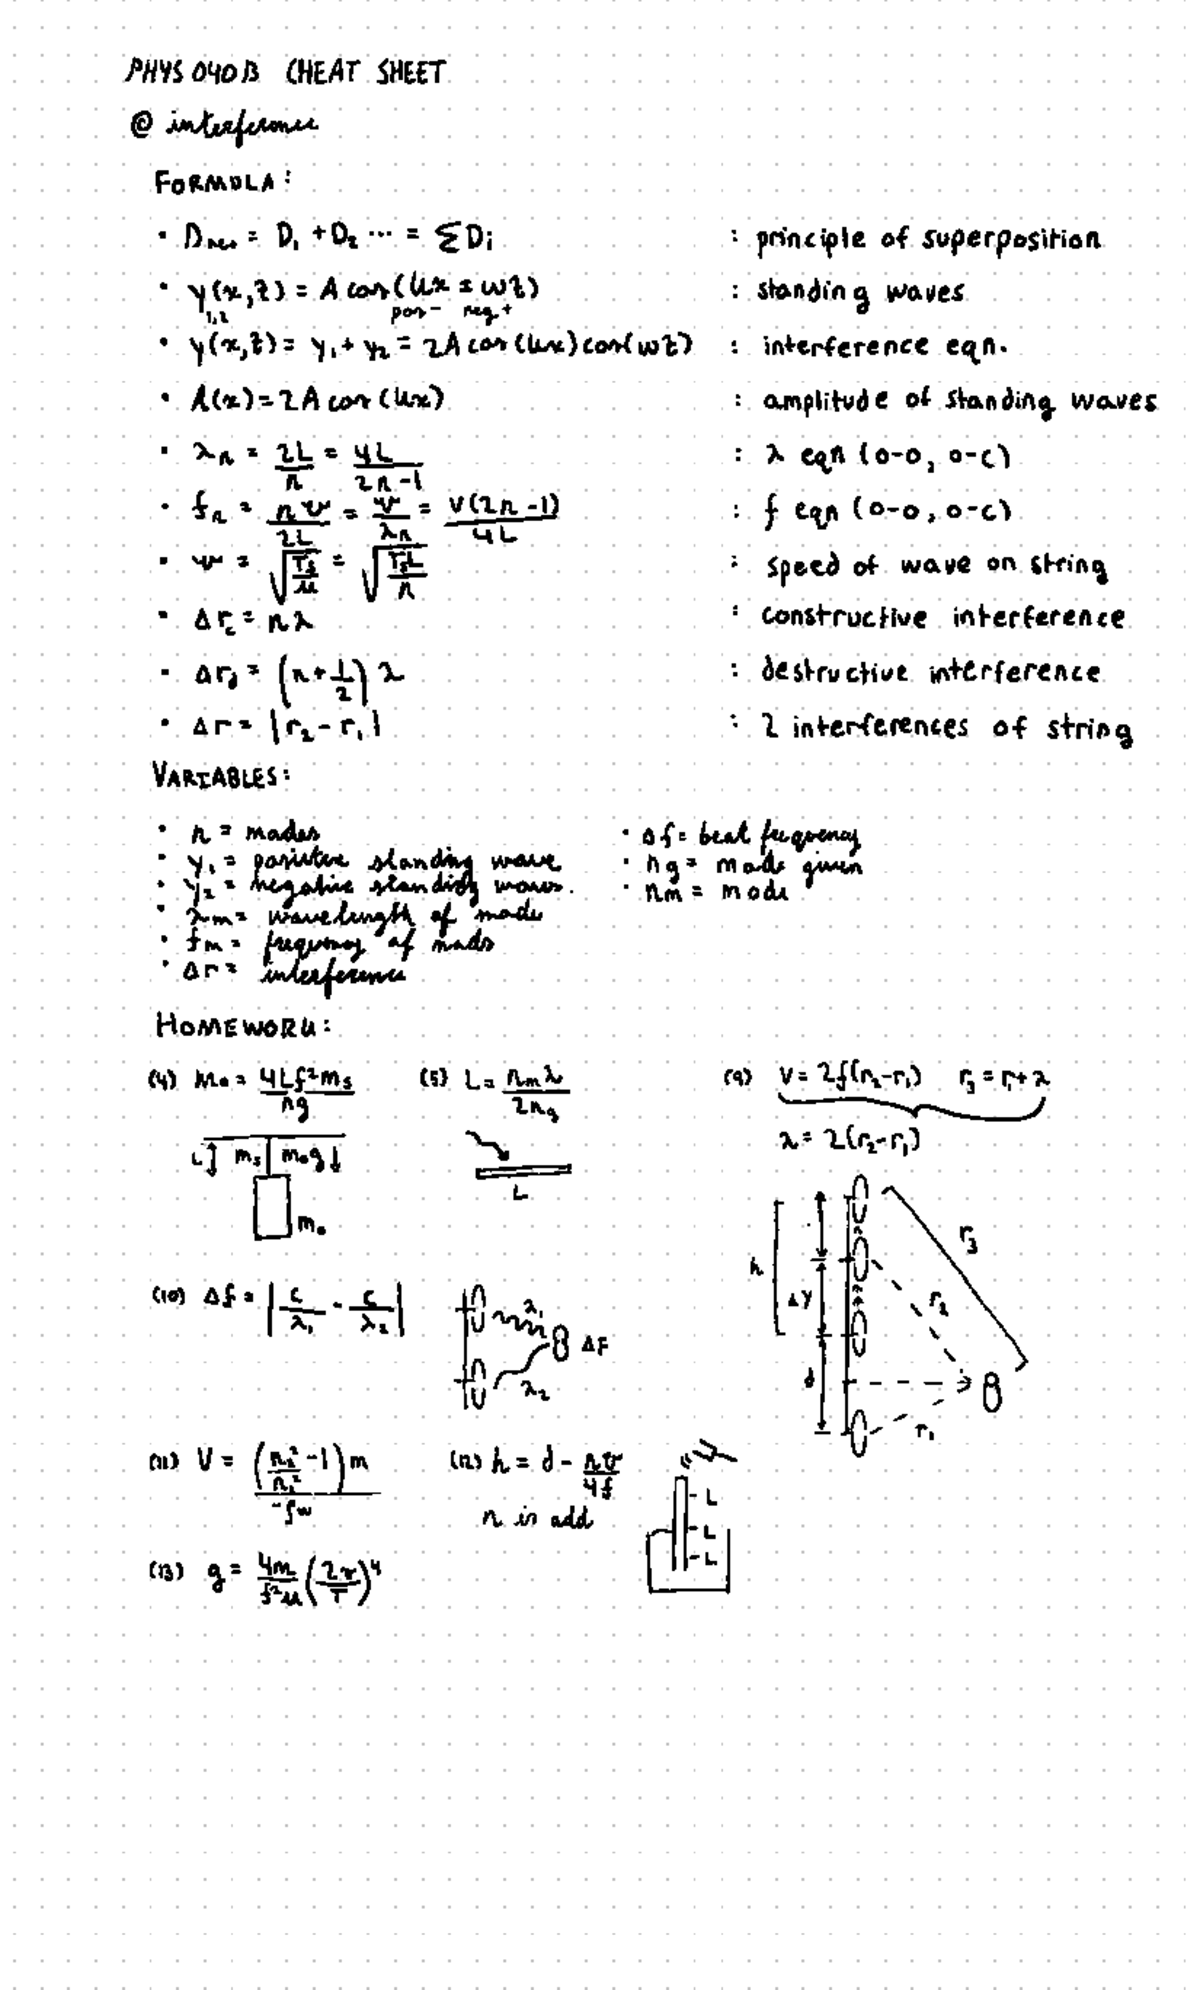 PHYS 040B CHEAT SHEET
@ interference
FORMULA:
• Dnet = D₁ + D₂ ... = ΣDi : principle of superposition
• y₁,₂(x,t) = A cos(kx ± wt) : standing waves
pos - neg +
• y(x,t) = y₁ + y₂ = 2A cos(kx) cos(wt) : interference eqn.
• A(x) = 2A cos(kx) : amplitude of standing waves
• λn = 2L/n = 4L/(2n-1) : λ eqn (o-o, o-c)
• fn = nv/2L = v/λn = V(2n-1)/4L : f eqn (o-o, o-c)
• v = √(Ts/μ) = √(TsL/m) : speed of wave on string
• Δrc = nλ : constructive interference
• Δrd = (n + 1/2) λ : destructive interference
• Δr = |r₂ - r₁| : 2 interferences of string
VARIABLES:
• n = modes • Δf = beat frequency
• y₁ = positive standing wave • ng = mode given
• y₂ = negative standing waves. • nm = mode
• λm = wavelength of mode
• fm = frequency of mode
• Δr = interference
HOMEWORK:
(4) M₀ = 4Lf²ms/ng (5) L = nmλ/2ng (9) V = 2f(r₂-r₁) r₃ = r₁ + λ
λ = 2(r₂-r₁)
L ms m₀g L
m₀
h Δy d r₃ r₂ r₁
(10) Δf = |c/λ₁ - c/λ₂| λ₁ Δf
λ₂
(11) V = (n₂²/n₁² - 1)m/-fw (12) h = d - nv/4f
n is odd
L
L
L
(13) g = 4m/f²μ (2π/T)⁴